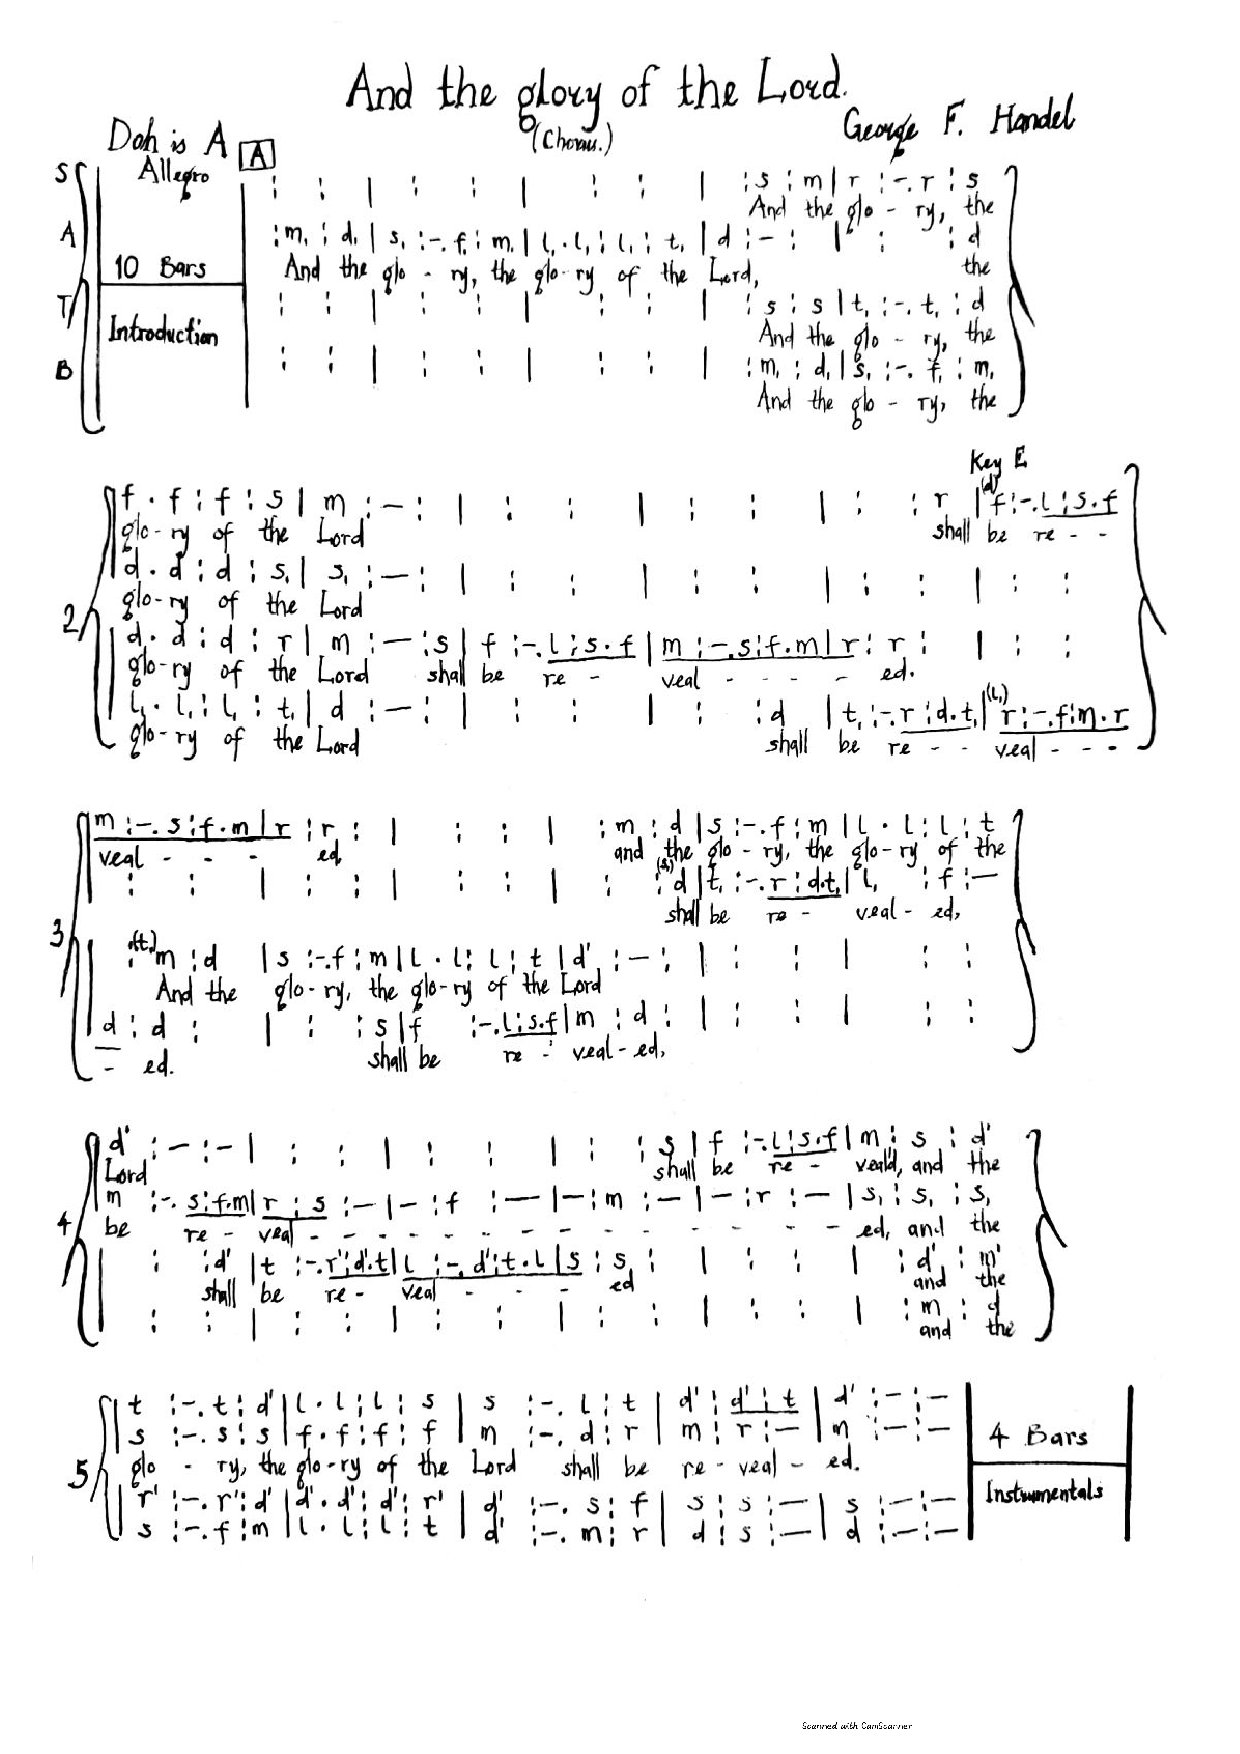 And the glory of the Lord.
(Chorus.)
George F. Handel
Doh is A
Allegro
A
S : : | : : | : : | : s : m | r : -. r : s
And the glo - ry, the
A : m, : d, | s, : -. f, : m, | l, . l, : l, : t, | d : - : | : : d
And the glo - ry, the glo-ry of the Lord, the
10 Bars
Introduction
T : : | : : | : : | : s : s | t, : -. t, : d
And the glo - ry, the
B : : | : : | : : | : m, : d, | s, : -. f, : m,
And the glo - ry, the
Key E
f . f : f : s | m : - : | : : | : : | : : r | (d) f : -. l : s . f
glo-ry of the Lord shall be re - -
d . d : d : s, | s, : - : | : : | : : | : : | : :
glo-ry of the Lord
2
d . d : d : r | m : - : s | f : -. l : s . f | m : -. s : f . m | r : r : | : :
glo-ry of the Lord shall be re - veal - - - - ed.
l, . l, : l, : t, | d : - : | : : | : : d | t, : -. r : d . t, | (l,) r : -. f : m . r
glo-ry of the Lord shall be re - - veal - - -
m : -. s : f . m | r : r : | : : | : m : d | s : -. f : m | l . l : l : t
veal - - - ed and the glo - ry, the glo-ry of the
: : | : : | : : | : : d | t, : -. r : d . t, | l, : f : -
shall be re - veal - ed,
3
(t.) : m : d | s : -. f : m | l . l : l : t | d' : - : | : : | : :
And the glo-ry, the glo-ry of the Lord
d : d : | : : s | f : -. l : s . f | m : d : | : : | : :
- ed. shall be re - veal-ed,
d' : - : - | : : | : : | : : s | f : -. l : s . f | m : s : d'
Lord shall be re - veal'd, and the
m : -. s : f . m | r : s : - | - : f : - | - : m : - | - : r : - | s, : s, : s,
be re - veal - - - - - - - - - - - - ed, and the
4
: : d' | t : -. r' : d' . t | l : -. d' : t . l | s : s : | : : | : d' : m'
shall be re - veal - - - ed and the
: : | : : | : : | : : | : : | : m : d
and the
t : -. t : d' | l . l : l : s | s : -. l : t | d' : d' : t | d' : - : -
s : -. s : s | f . f : f : f | m : -. d : r | m : r : - | m : - : -
glo - ry, the glo-ry of the Lord shall be re - veal - ed.
5
r' : -. r' : d' | d' . d' : d' : r' | d' : -. s : f | s : s : - | s : - : -
s : -. f : m | l . l : l : t | d' : -. m : r | d : s : - | d : - : -
4 Bars
Instrumentals
Scanned with CamScanner